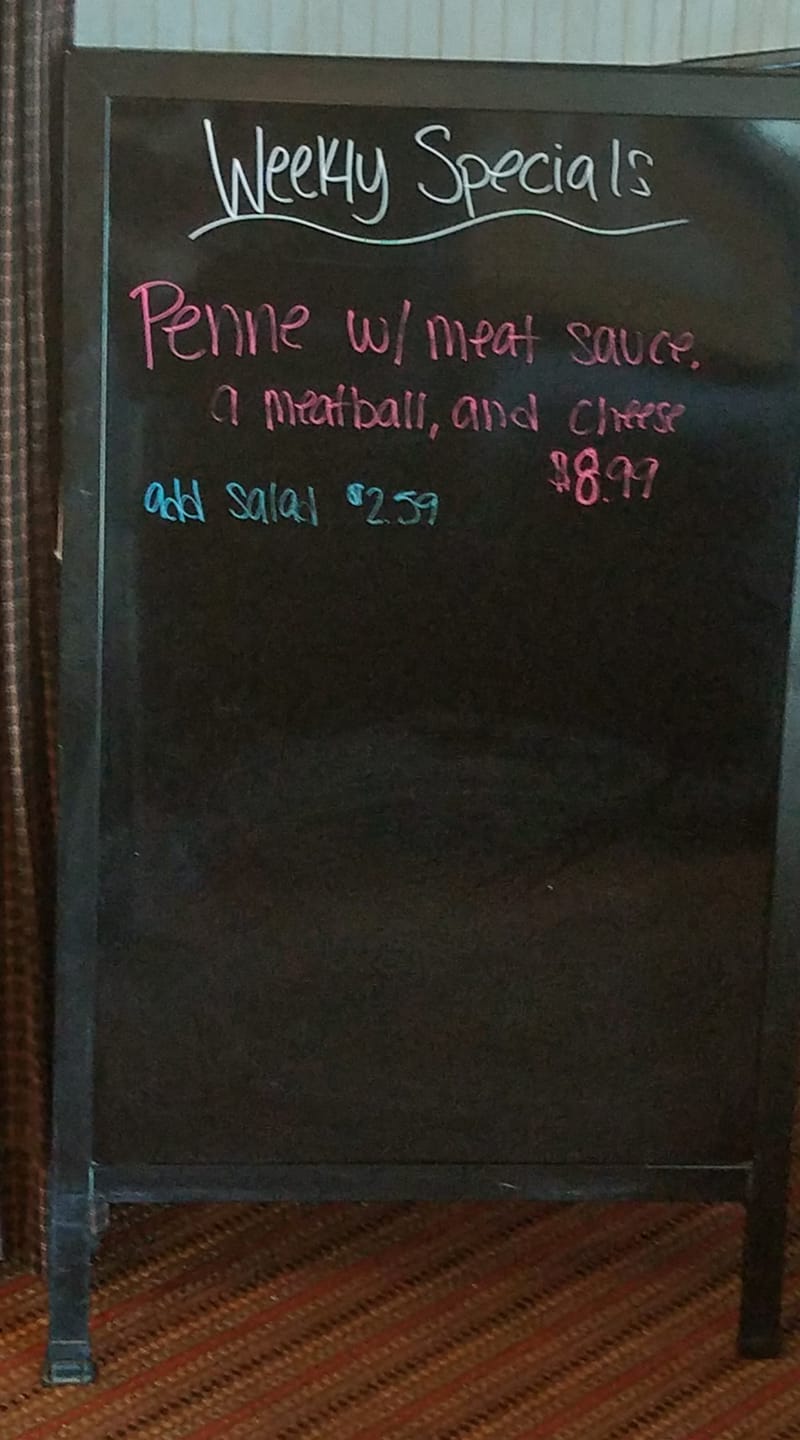 Weekly Specials
Penne w/ meat sauce.
a meatball, and cheese
$8.99
add salad $2.59